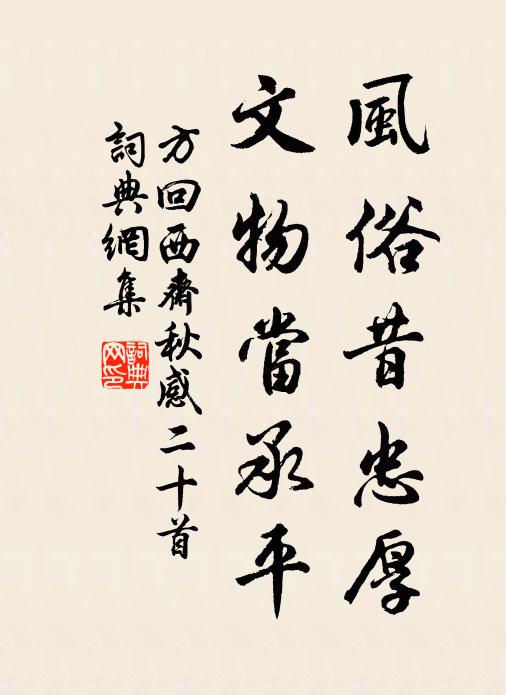 風俗昔忠厚
文物當承平
方回西齋秋感二十首
詞典網集
詞典
网印